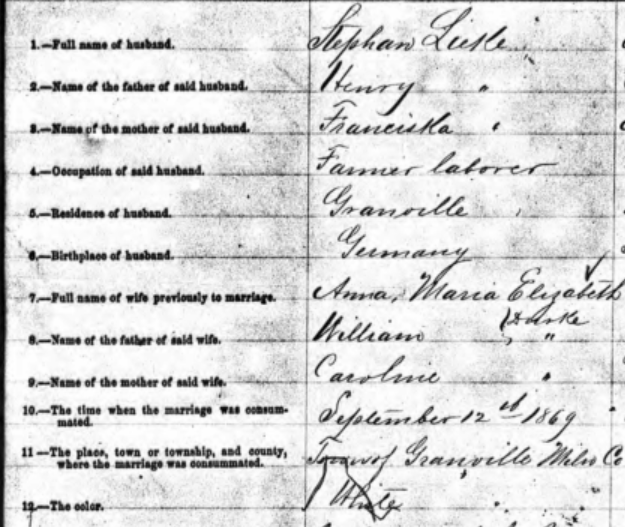 1.—Full name of husband. Stephan Lieske
2.—Name of the father of said husband. Henry "
3.—Name of the mother of said husband. Franciska "
4.—Occupation of said husband. Farmer laborer
5.—Residence of husband. Granville
6.—Birthplace of husband. Germany
7.—Full name of wife previously to marriage. Anna, Maria Elizabeth
8.—Name of the father of said wife. William "
9.—Name of the mother of said wife. Caroline "
10.—The time when the marriage was consum- September 12th 1869
mated.
11—The place, town or township, and county, Town of Granville Milw Co
where the marriage was consummated.
12—The color. White